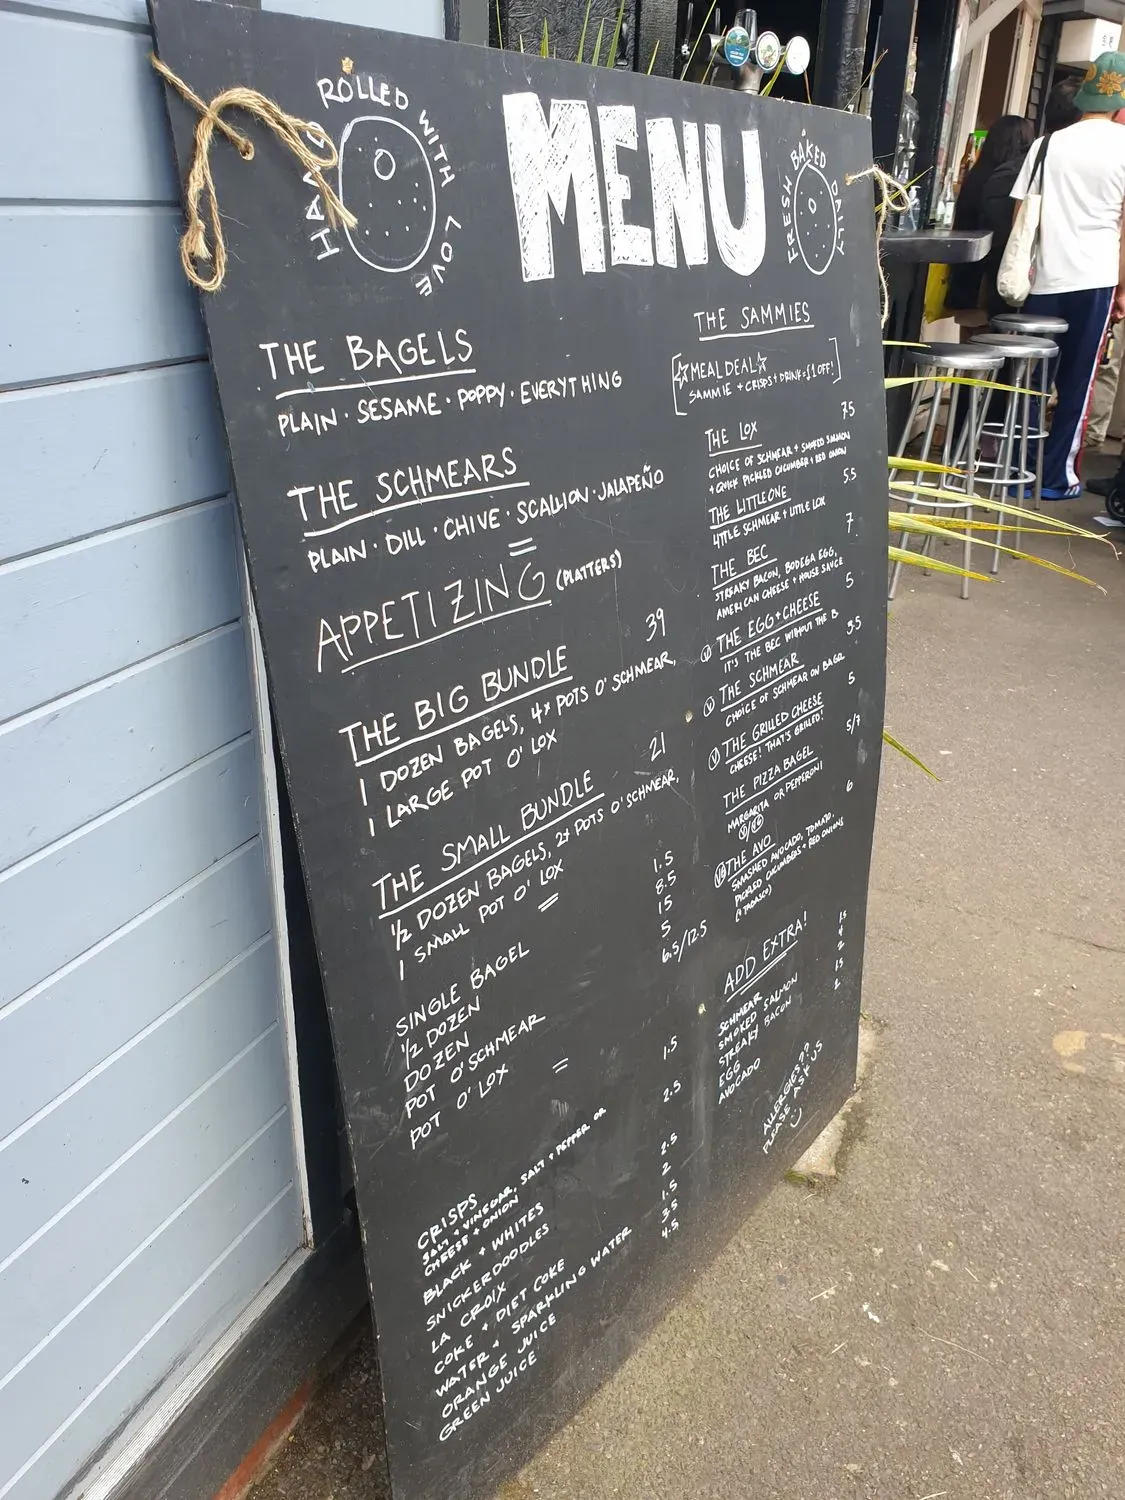 HAND ROLLED WITH LOVE
MENU
FRESH BAKED DAILY
THE BAGELS
PLAIN · SESAME · POPPY · EVERYTHING
THE SCHMEARS
PLAIN · DILL · CHIVE · SCALLION · JALAPEÑO
APPETIZING (PLATTERS)
THE BIG BUNDLE 39
1 DOZEN BAGELS, 4x POTS O' SCHMEAR,
1 LARGE POT O' LOX
THE SMALL BUNDLE 21
1/2 DOZEN BAGELS, 2x POTS O' SCHMEAR,
1 SMALL POT O' LOX
SINGLE BAGEL 1.5
1/2 DOZEN 8.5
DOZEN 15
POT O' SCHMEAR 5
POT O' LOX 6.5/12.5
CRISPS 1.5
SALT + VINEGAR, SALT + PEPPER OR
CHEESE + ONION
BLACK + WHITES 2.5
SNICKERDOODLES
LA CROIX 2.5
COKE + DIET COKE 2
WATER + SPARKLING WATER 1.5
ORANGE JUICE 3.5
GREEN JUICE 4.5
THE SAMMIES
MEAL DEAL
SAMMIE + CRISPS + DRINK = £1 OFF!
THE LOX 7.5
CHOICE OF SCHMEAR + SMOKED SALMON
+ QUICK PICKLED CUCUMBER + RED ONION
THE LITTLE ONE 5.5
LITTLE SCHMEAR + LITTLE LOX
THE BEC 7
STREAKY BACON, BODEGA EGG,
AMERICAN CHEESE + HOUSE SAUCE
(V) THE EGG + CHEESE 5
IT'S THE BEC WITHOUT THE B
(V) THE SCHMEAR 3.5
CHOICE OF SCHMEAR ON BAGEL
(V) THE GRILLED CHEESE 5
CHEESE! THAT'S GRILLED!
THE PIZZA BAGEL 5/7
MARGARITA OR PEPPERONI
(V)/(VG)
(VG) THE AVO 6
SMASHED AVOCADO, TOMATO,
PICKLED CUCUMBERS + RED ONIONS
(+ TABASCO)
ADD EXTRA!
SCHMEAR 1.5
SMOKED SALMON 4
STREAKY BACON 2
EGG 1.5
AVOCADO 2
ALLERGIES??
PLEASE ASK US